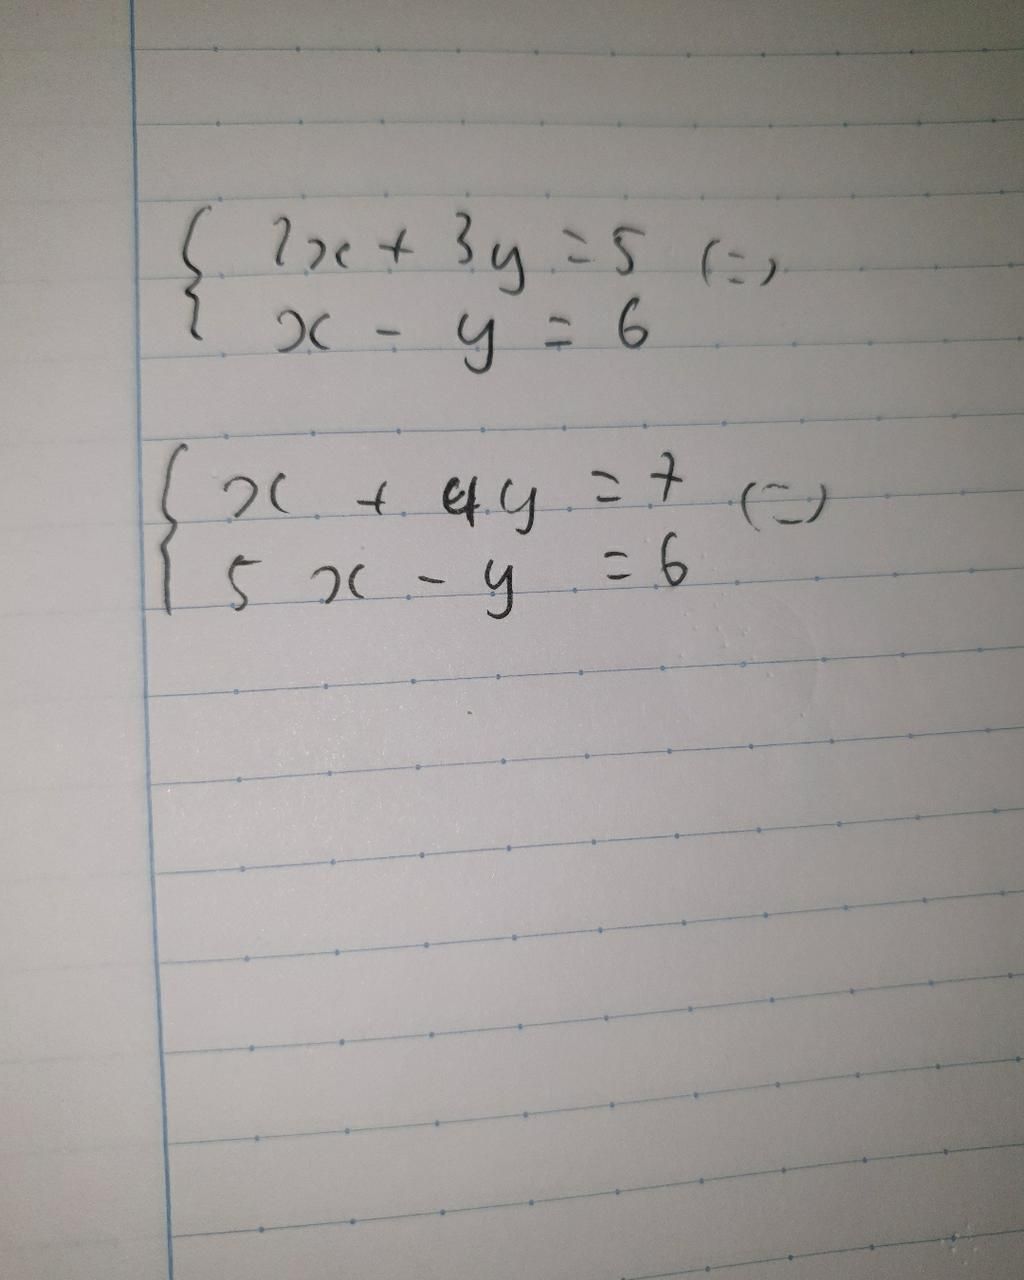 { 2x + 3y = 5 (=)
x - y = 6
{ x + 4y = 7 (=)
5x - y = 6